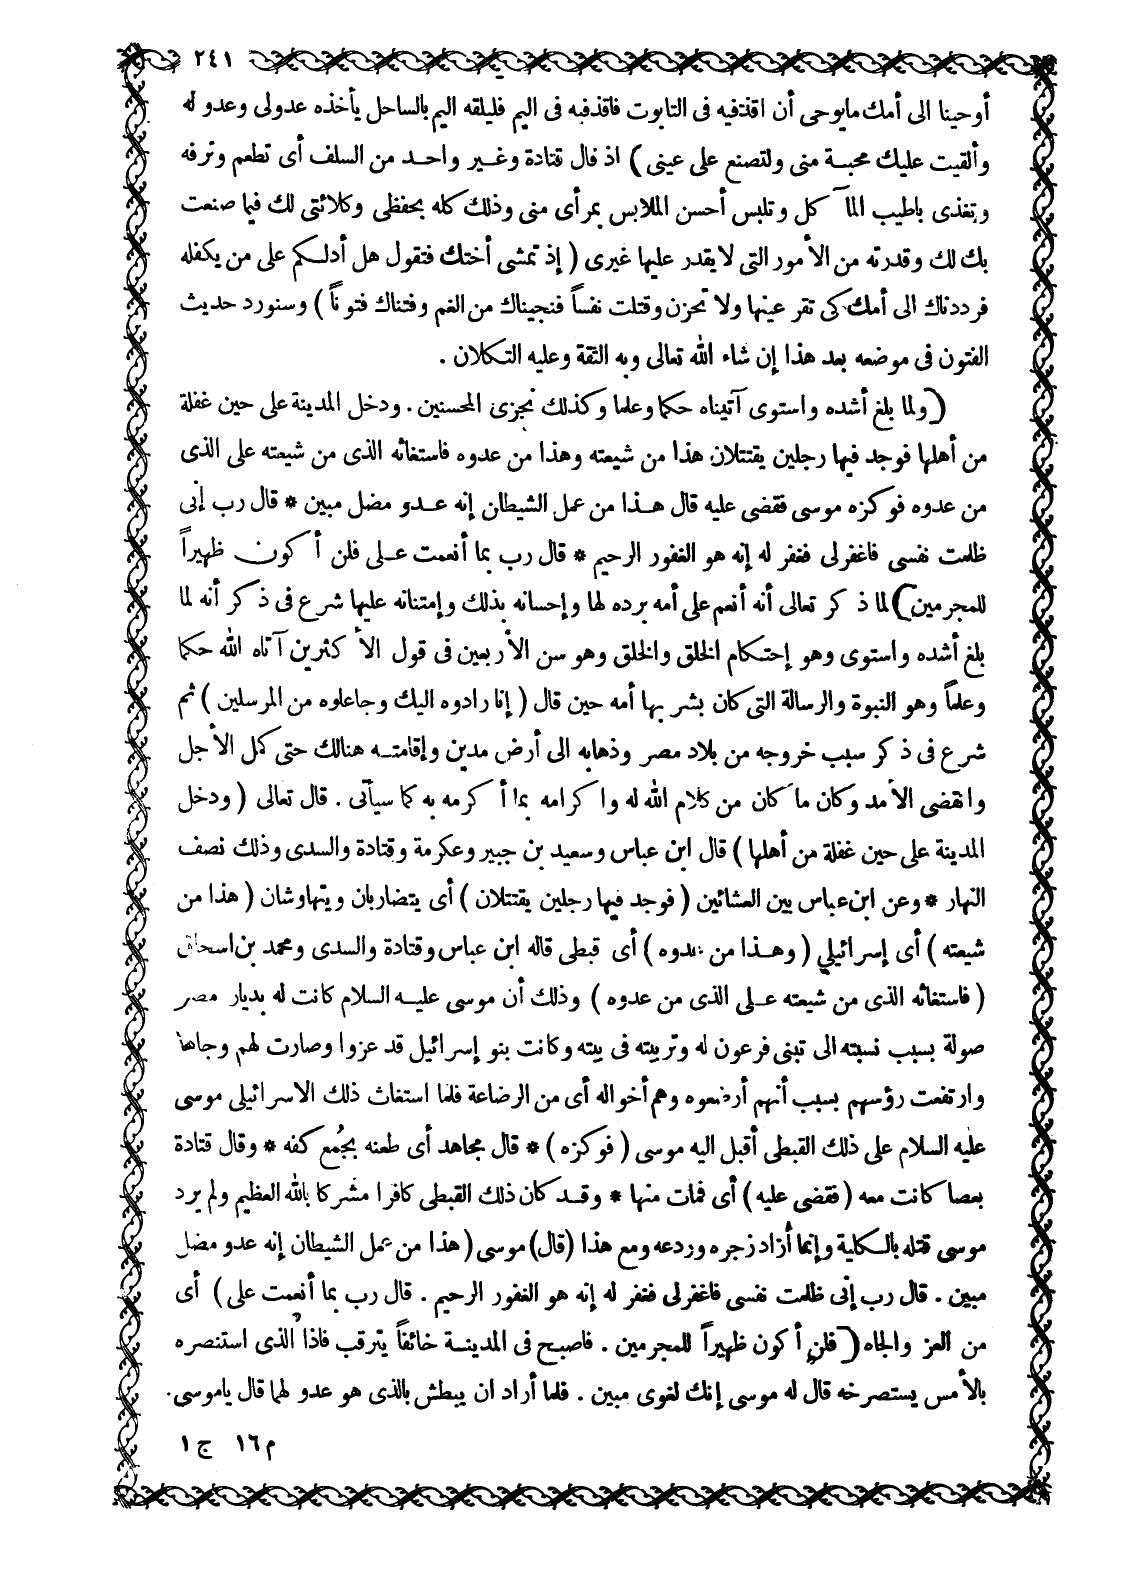 ٢٤١
أوحينا الى أمك مايوحى أن اقذفيه فى التابوت فاقذفيه فى اليم فليلقه اليم بالساحل يأخذه عدولى وعدو له
وألقيت عليك محبة منى ولتصنع على عينى ) اذ قال قتادة وغير واحد من السلف أى تطعم وترفه
وتغذى باطيب المآ كل وتلبس أحسن الملابس بمرأى منى وذلك كله بحفظى وكلائتى لك فيما صنعت
بك لك وقدرته من الأمور التى لايقدر عليها غيرى ( إذ تمشى أختك فتقول هل أدلكم على من يكفله
فرددناك الى أمك كى تقر عينها ولا تحزن وقتلت نفساً فنجيناك من الغم وفتناك فتوناً ) وسنورد حديث
الفتون فى موضعه بعد هذا إن شاء الله تعالى وبه الثقة وعليه التكلان .
( ولما بلغ أشده واستوى آتيناه حكما وعلما وكذلك نجزى المحسنين . ودخل المدينة على حين غفلة
من أهلها فوجد فيها رجلين يقتتلان هذا من شيعته وهذا من عدوه فاستغاثه الذى من شيعته على الذى
من عدوه فوكزه موسى فقضى عليه قال هذا من عمل الشيطان إنه عدو مضل مبين * قال رب إنى
ظلمت نفسى فاغفر لى فغفر له إنه هو الغفور الرحيم * قال رب بما أنعمت على فلن أ كون ظهيراً
للمجرمين ) لما ذ كر تعالى أنه أنعم على أمه برده لها وإحسانه بذلك وإمتنانه عليها شرع فى ذ كر أنه لما
بلغ أشده واستوى وهو إحتكام الخلق والخلق وهو سن الأربعين فى قول الأ كثرين آتاه الله حكما
وعلماً وهو النبوة والرسالة التى كان بشر بها أمه حين قال ( إنا رادوه اليك وجاعلوه من المرسلين ) ثم
شرع فى ذ كر سبب خروجه من بلاد مصر وذهابه الى أرض مدين وإقامته هنالك حتى كمل الأجل
وانقضى الأمد وكان ما كان من كلام الله له واكرامه بما أ كرمه به كما سيآتى . قال تعالى ( ودخل
المدينة على حين غفلة من أهلها ) قال ابن عباس وسعيد بن جبير وعكرمة وقتادة والسدى وذلك نصف
النهار * وعن ابن عباس بين العشائين ( فوجد فيها رجلين يقتتلان ) أى يتضاربان ويتهاوشان ( هذا من
شيعته ) أى إسرائيلي ( وهذا من عدوه ) أى قبطى قاله ابن عباس وقتادة والسدى ومحمد بن اسحاق
( فاستغاثه الذى من شيعته على الذى من عدوه ) وذلك أن موسى عليه السلام كانت له بديار مصر
صولة بسبب نسبته الى تبنى فرعون له وتربيته فى بيته وكانت بنو إسرائيل قد عزوا وصارت لهم وجاهة
وارتفعت رؤسهم بسبب أنهم أرضعوه وهم أخواله أى من الرضاعة فلما استغاث ذلك الاسرائيلى موسى
عليه السلام على ذلك القبطى أقبل اليه موسى ( فوكزه ) * قال مجاهد أى طعنه بجُمع كفه * وقال قتادة
بعصا كانت معه ( فقضى عليه ) أى فمات منها * وقد كان ذلك القبطى كافرا مشركا بالله العظيم ولم يرد
موسى قتله بالكلية وإنما أراد زجره وردعه ومع هذا (قال) موسى ( هذا من عمل الشيطان إنه عدو مضل
مبين . قال رب إنى ظلمت نفسى فاغفر لى فغفر له إنه هو الغفور الرحيم . قال رب بما أنعمت على ) أى
من العز والجاه ( فلن أ كون ظهيراً للمجرمين . فاصبح فى المدينة خائفاً يترقب فاذا الذى استنصره
بالأمس يستصرخه قال له موسى إنك لغوى مبين . فلما أراد ان يبطش بالذى هو عدو لهما قال ياموسى .
م ١٦ ج ١